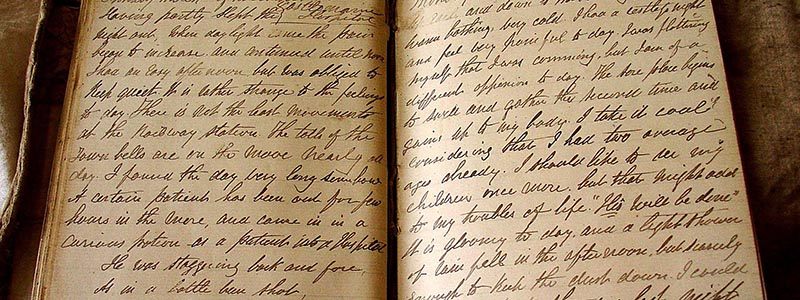 Castlemaine
Having partly slept the Hospital
night out. When daylight came the pain
began to increase and continued until noon
I had an easy afternoon but was obliged to
keep quiet. It is better change to the feelings
to day. There is not the least movements
at the Railway station the tolls of the
Town bells are on the move nearly all
day. I found the day very long somehow
A certain patient has been out for few
hours in the more, and came in in a
curious potion as a patient into a Hospital
He was staggering back and fore,
As in a bottle been shot,
and down is
warm bathing, very cold. I had a restless night
and feel very painful to day. I was flattering
myself that I was comming, but I am of a
different oppenion to day. The sore place begins
to swell and gather the second time and
pains up to my body. I take it cool
considering that I had two average
ages already. I should like to see my
children once more. but that might add
to my troubles of life. "His will be done"
It is gloomy to day, and a light shower
of rain fell in the afternoon, but scarcely
enough to keep the dust down. I could